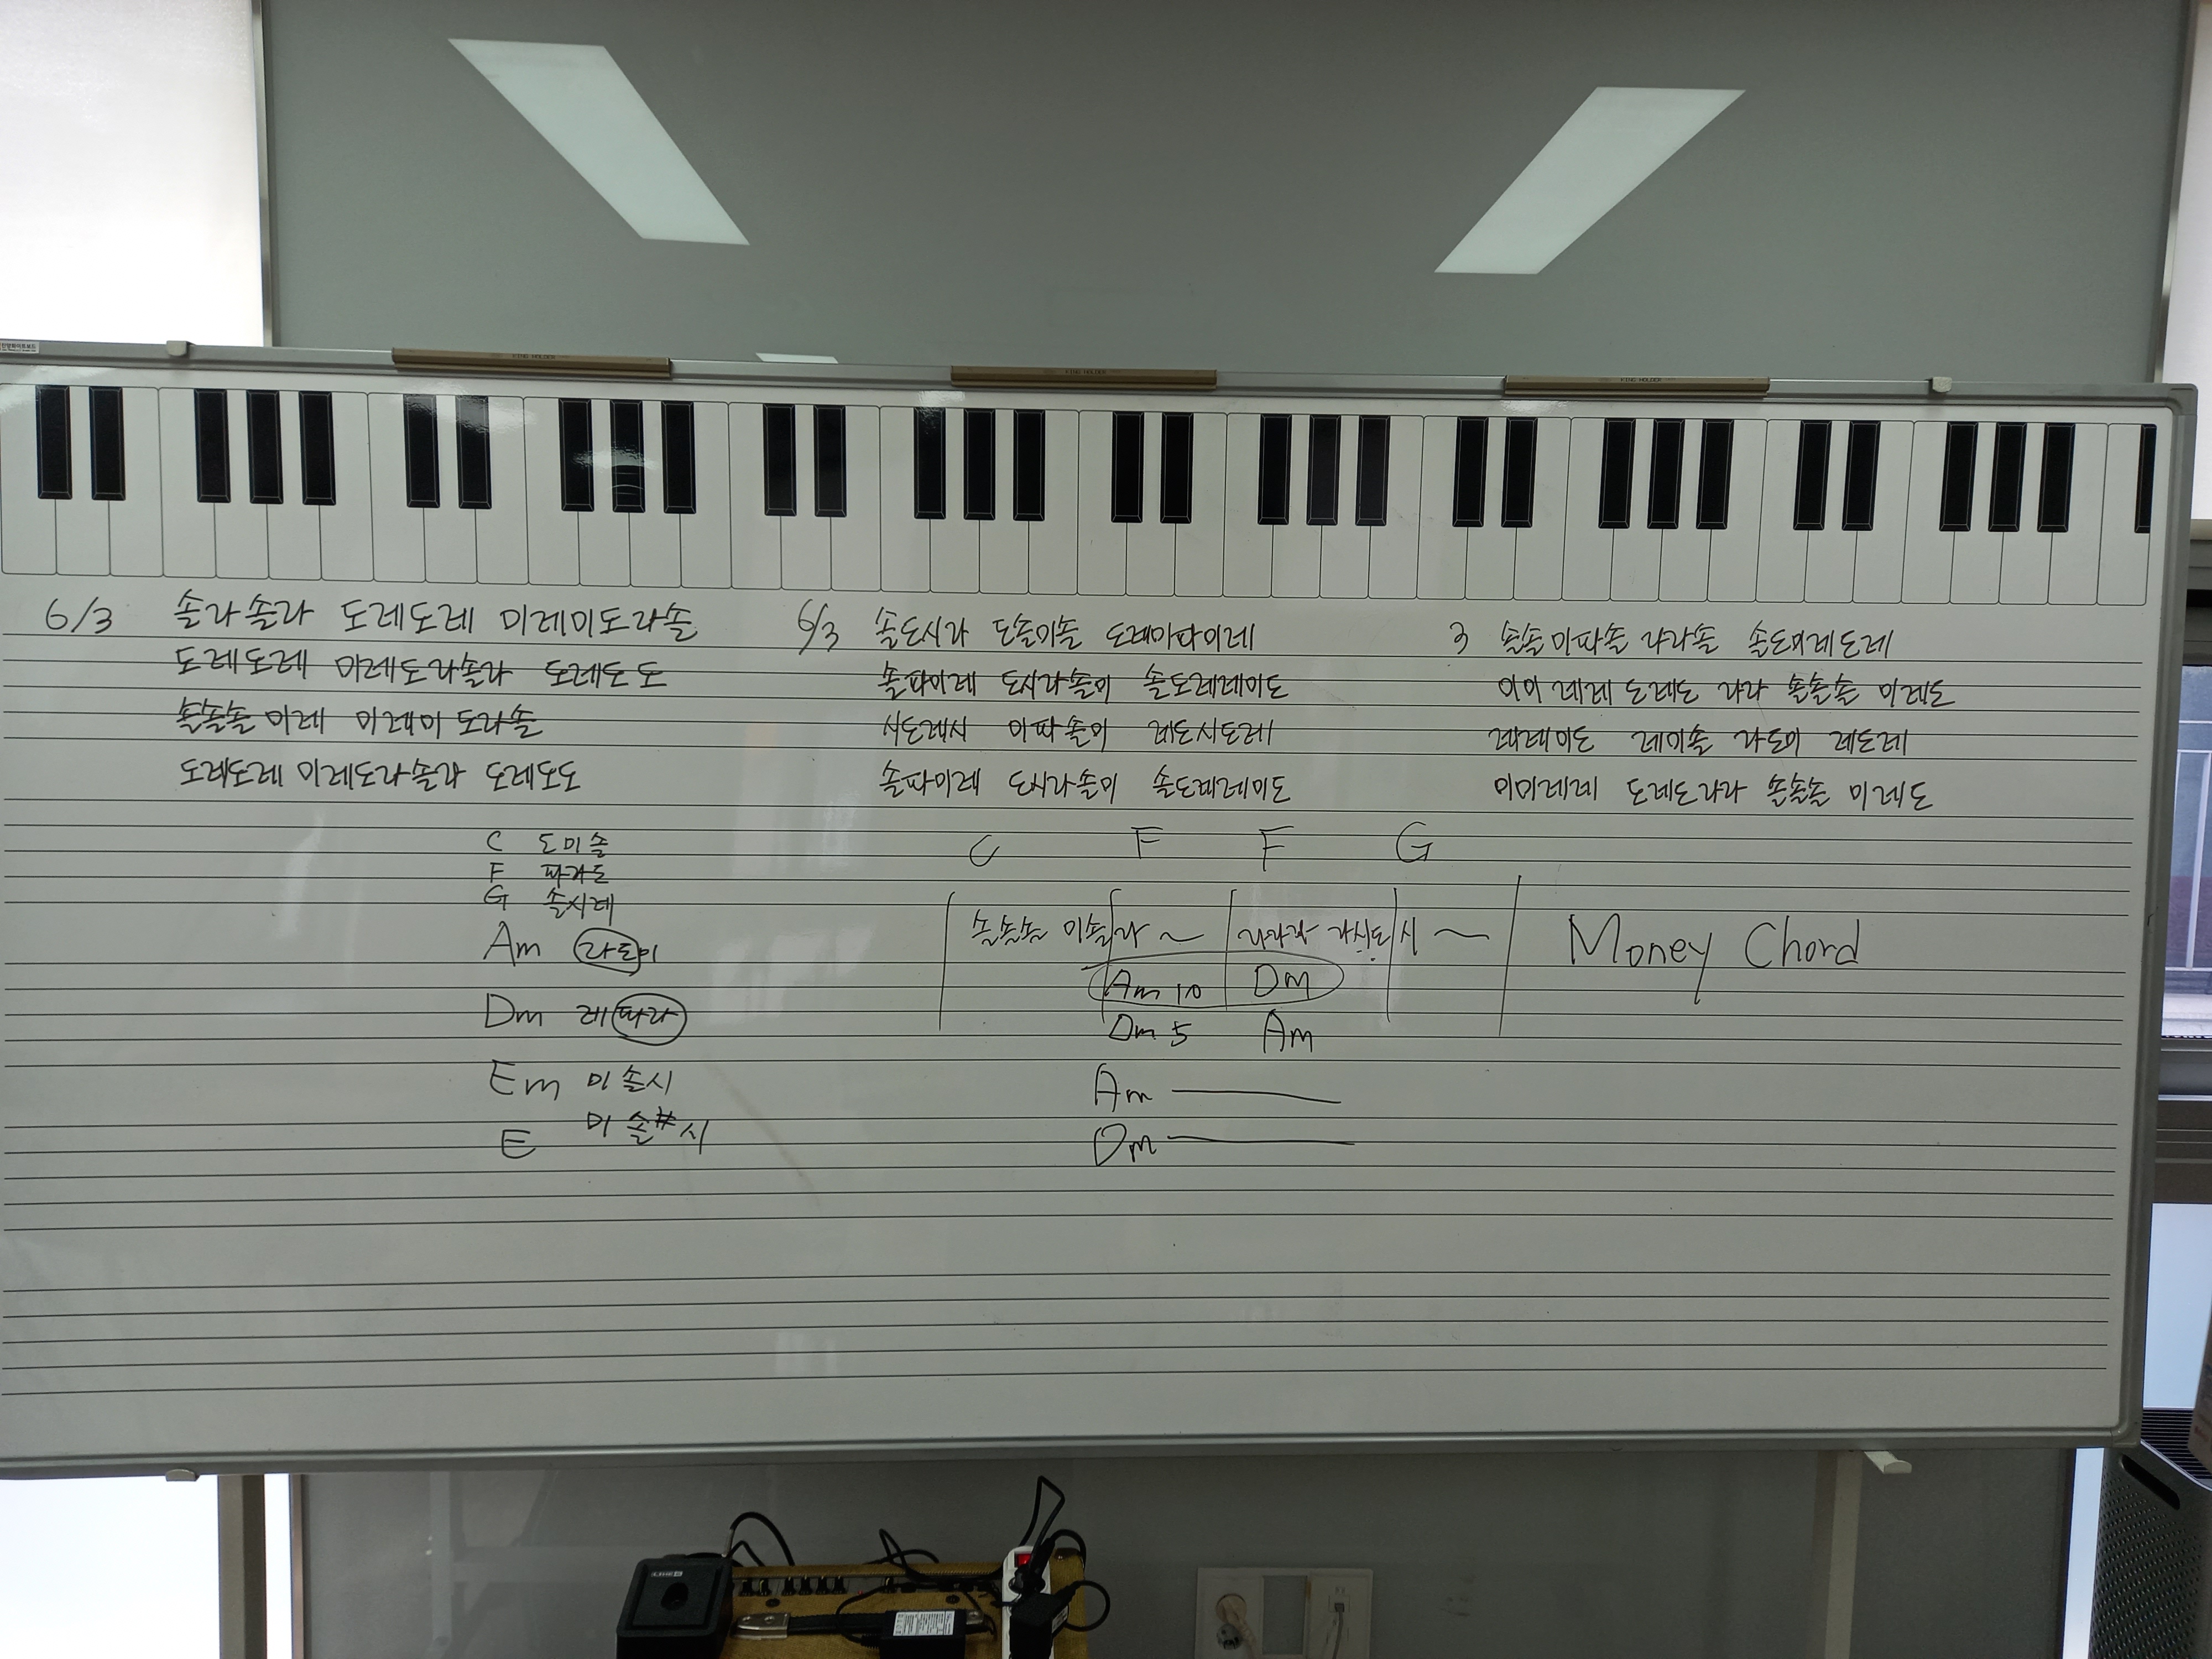 KING HOLDER
KING HOLDER
KING HOLDER
6/3 솔라솔라 도레도레 미레미도라솔
도레도레 미레도라솔라 도레도도
솔솔솔미레 미레미도라솔
도레도레 미레도라솔라 도레도도
6/3 솔도시라 도솔미솔 도레미파미레
솔파미레 도시라솔미 솔도레레미도
시도레시 미파솔미 레도시도레
솔파미레 도시라솔미 솔도레레미도
3 솔솔미파솔 라라솔 솔도미레도레
미미레레 도레도 라라 솔솔솔 미레도
레레미도 레미솔 라도미 레도레
미미레레 도레도라라 솔솔솔 미레도
C 도미솔
F 파라도
G 솔시레
Am 라도미
Dm 레파라
Em 미솔시
E 미솔#시
C F F G
솔솔솔 미솔 라~ 라라라 라시도 시~
Am 10 Dm
Dm 5 Am
Am
Dm
Money Chord